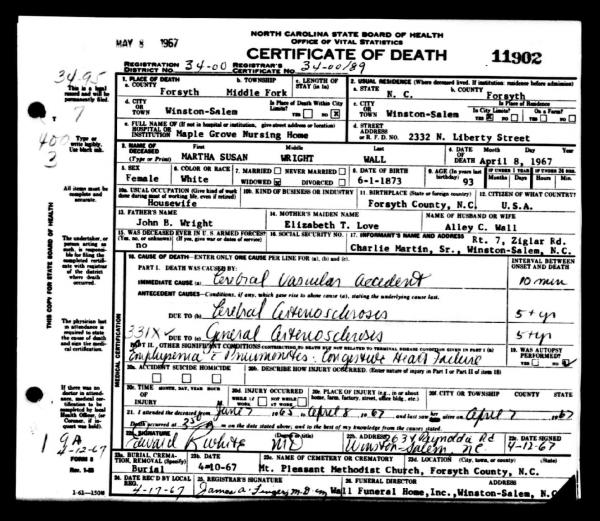 NORTH CAROLINA STATE BOARD OF HEALTH
OFFICE OF VITAL STATISTICS
MAY 8 1967
CERTIFICATE OF DEATH
11902
REGISTRATION DISTRICT NO. 34-00 REGISTRAR'S CERTIFICATE NO. 34-00/89
1. PLACE OF DEATH
a. COUNTY Forsyth
b. TOWNSHIP Middle Fork
c. LENGTH OF STAY (in 1a)
2. USUAL RESIDENCE (Where deceased lived. If institution: residence before admission)
a. STATE N. C.
b. COUNTY Forsyth
d. CITY OR TOWN Winston-Salem
Is Place of Death Within City Limits? YES NO X
c. CITY OR TOWN Winston-Salem
Is Place of Residence
In City Limits? YES X NO
On a Farm? YES NO
e. FULL NAME OF (If not in hospital or institution, give street address or location)
HOSPITAL OR INSTITUTION Maple Grove Nursing Home
d. STREET ADDRESS OR R. F. D. NO. 2332 N. Liberty Street
3. NAME OF DECEASED (Type or Print)
First Middle Last
MARTHA SUSAN WRIGHT WALL
4. DATE OF DEATH Month Day Year
April 8, 1967
5. SEX Female
6. COLOR OR RACE White
7. MARRIED NEVER MARRIED
WIDOWED X DIVORCED
8. DATE OF BIRTH 6-1-1873
9. AGE (In years last birthday) 93
IF UNDER 1 YEAR Months Days
IF UNDER 24 HRS. Hours Min.
10a. USUAL OCCUPATION (Give kind of work done during most of working life, even if retired)
Housewife
10b. KIND OF BUSINESS OR INDUSTRY
11. BIRTHPLACE (State or foreign country)
Forsyth County, N.C.
12. CITIZEN OF WHAT COUNTRY?
U.S.A.
13. FATHER'S NAME
John B. Wright
14. MOTHER'S MAIDEN NAME
Elizabeth T. Love
NAME OF HUSBAND OR WIFE
Alley C. Wall
15. WAS DECEASED EVER IN U.S. ARMED FORCES?
(Yes, no, or unknown) (If yes, give war or dates of service)
no
16. SOCIAL SECURITY NO.
17. INFORMANT'S NAME AND ADDRESS Rt. 7, Ziglar Rd.
Charlie Martin, Sr., Winston-Salem, N.C.
18. CAUSE OF DEATH—ENTER ONLY ONE CAUSE PER LINE FOR (a), (b), and (c).
INTERVAL BETWEEN ONSET AND DEATH
PART I. DEATH WAS CAUSED BY:
IMMEDIATE CAUSE (a) Cerebral Vascular Accident 10 min
ANTECEDENT CAUSES—Conditions, if any, which gave rise to above cause (a), stating the underlying cause last.
DUE TO (b) Cerebral Arteriosclerosis 5+yr
331X
DUE TO (c) General Arteriosclerosis 5+yr
PART II. OTHER SIGNIFICANT CONDITIONS CONTRIBUTING TO DEATH BUT NOT RELATED TO TERMINAL DISEASE CONDITION GIVEN IN PART I (a)
Emphysema c Pneumonitis · Congestive Heart Failure
19. WAS AUTOPSY PERFORMED?
YES NO
20a. ACCIDENT SUICIDE HOMICIDE
20b. DESCRIBE HOW INJURY OCCURRED. (Enter nature of injury in Part I or Part II of item 18)
20c. TIME OF INJURY MONTH, DAY, YEAR HOUR M.
20d. INJURY OCCURRED
WHILE AT WORK NOT WHILE AT WORK
20e. PLACE OF INJURY (e.g., in or about home, farm, factory, street, office bldg., etc.)
20f. CITY OR TOWNSHIP COUNTY STATE
21. I attended the deceased from June 7 1965 to April 8 1967 and last saw her alive on April 7 1967
Death occurred at m on the date stated above; and to the best of my knowledge from the causes stated.
22a. SIGNATURE (Degree or title)
Edward R White MD
22b. ADDRESS 2634 Reynolda Rd
Winston-Salem NC
22c. DATE SIGNED
4-12-67
23a. BURIAL, CREMATION, REMOVAL (Specify)
Burial
23b. DATE
4-10-67
23c. NAME OF CEMETERY OR CREMATORY LOCATION (City, town, or county) (State)
Mt. Pleasant Methodist Church, Forsyth County, N.C.
24. DATE REC'D BY LOCAL REG.
4-17-67
25. REGISTRAR'S SIGNATURE
26. FUNERAL DIRECTOR ADDRESS
Wall Funeral Home, Inc., Winston-Salem, N.C.
MEDICAL CERTIFICATION
THIS COPY FOR STATE BOARD OF HEALTH
34-95
This is a legal record and will be permanently filed.
7
400
3
Type or write legibly. Use black ink.
All items must be complete and accurate.
The undertaker, or person acting as such, is responsible for filing the completed certificate with registrar of the district where death occurred.
The physician last in attendance is required to state the cause of death and sign the medical certification.
If there was no doctor in attendance, medical certification to be completed by local Health Officer, (or Coroner, if inquest was held).
1 9A
4-12-67
FORM 8
Rev. 1-55
1-61—150M